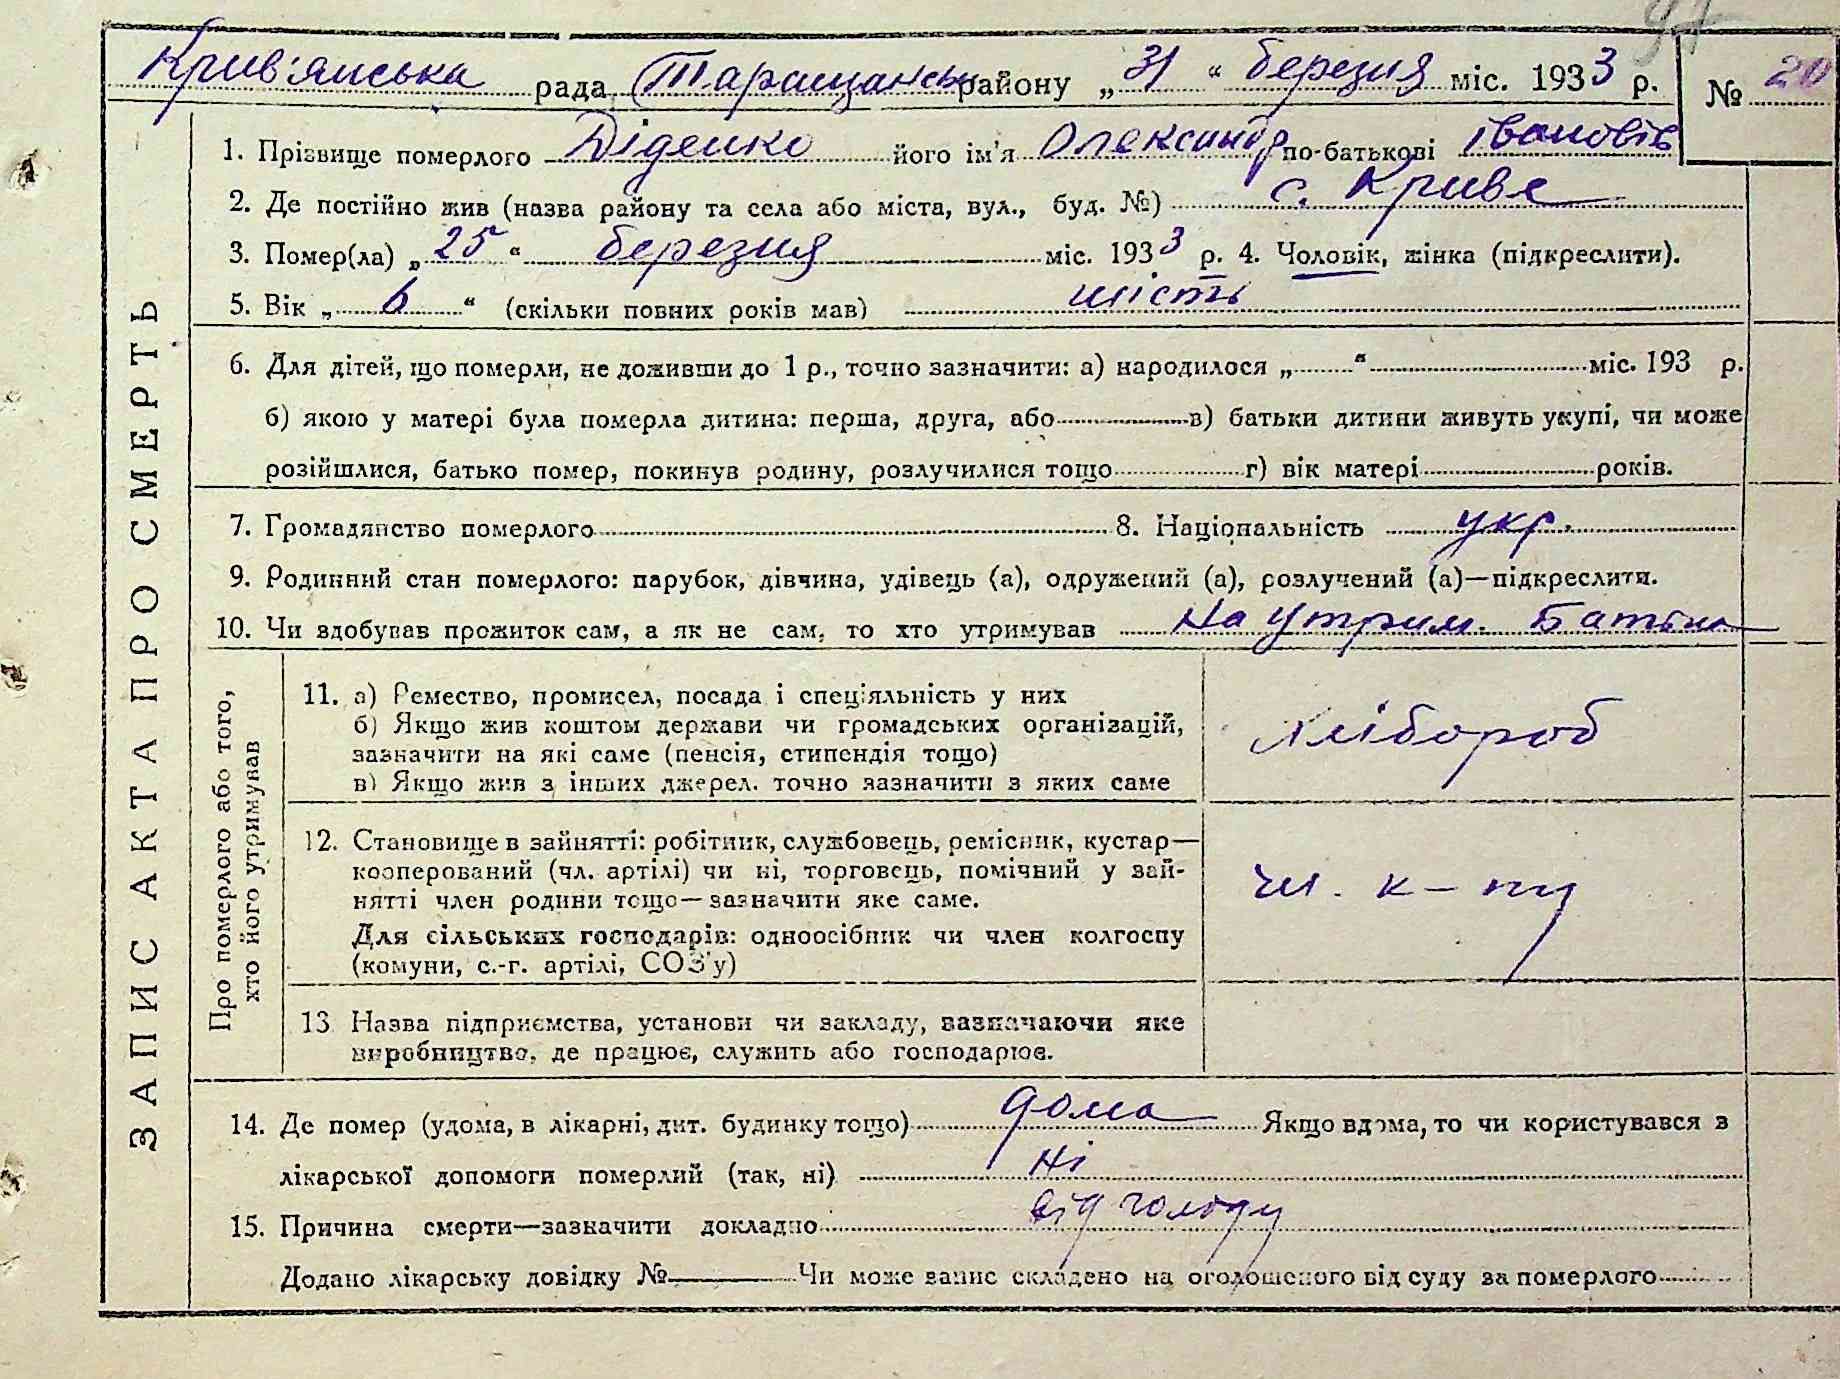 97
Крив'янська рада Таращанськ району „ 31 “ березня міс. 1933 р. № 20
1. Прізвище померлого Діденко його ім'я Олександр по-батькові Івановів
2. Де постійно жив (назва району та села або міста, вул., буд. №) с. Криве
3. Помер(ла) „ 25 “ березня міс. 1933 р. 4. Чоловік, жінка (підкреслити).
5. Вік „ 6 “ (скільки повних років мав) шість
6. Для дітей, що померли, не доживши до 1 р., точно зазначити: а) народилося „ “ міс. 193 р.
б) якою у матері була померла дитина: перша, друга, або в) батьки дитини живуть укупі, чи може
розійшлися, батько помер, покинув родину, розлучилися тощо г) вік матері років.
7. Громадянство померлого 8. Національність укр.
9. Родинний стан померлого: парубок, дівчина, удівець (а), одружений (а), розлучений (а)—підкреслити.
10. Чи здобував прожиток сам, а як не сам, то хто утримував на утрим. Батька
ЗАПИС АКТА ПРО СМЕРТЬ
Про померлого або того,
хто його утримував
11. а) Ремество, промисел, посада і спеціяльність у них
б) Якщо жив коштом держави чи громадських організацій,
зазначити на які саме (пенсія, стипендія тощо)
в) Якщо жив з інших джерел. точно зазначити з яких саме
Хлібороб
12. Становище в зайнятті: робітник, службовець, ремісник, кустар—
кооперований (чл. артілі) чи ні, торговець, помічний у зай-
нятті член родини тощо—зазначити яке саме.
Для сільських господарів: одноосібник чи член колгоспу
(комуни, с.-г. артілі, СОЗ'у)
чл. к-пу
13 Назва підприємства, установи чи закладу, зазначаючи яке
виробництво, де працює, служить або господарює.
14. Де помер (удома, в лікарні, дит. будинку тощо) дома Якщо вдома, то чи користувався з
лікарської допомоги померлий (так, ні) ні
15. Причина смерти—зазначити докладно від голоду
Додано лікарську довідку № Чи може запис складено на оголошеного від суду за померлого